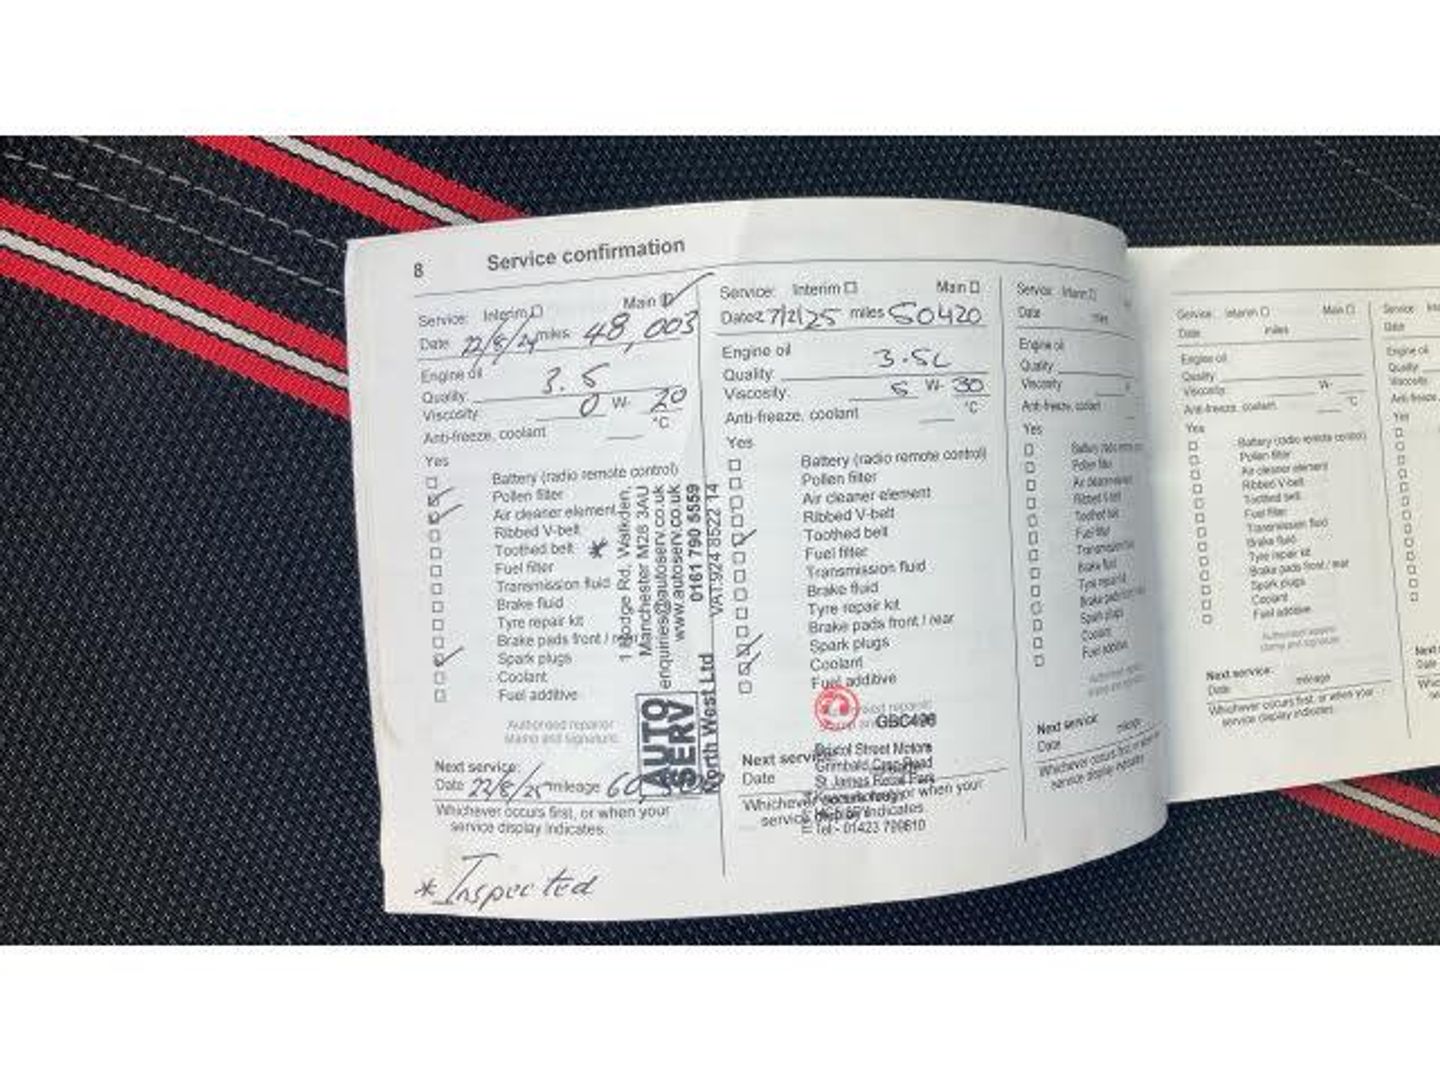 8 Service confirmation
Service: Interim Main
Date 22/8/24 miles 48,003
Engine oil 3.5
Quality
Viscosity 0 W- 20
Anti-freeze, coolant °C
Yes
Battery (radio remote control)
Pollen filter
Air cleaner element
Ribbed V-belt
Toothed belt *
Fuel filter
Transmission fluid
Brake fluid
Tyre repair kit
Brake pads front / rear
Spark plugs
Coolant
Fuel additive
Authorised repairer
stamp and signature
Next service:
Date 22/8/25 mileage
Whichever occurs first, or when your
service display indicates.
* Inspected
AUTO
SERV
North West Ltd
Rd, Walkden,
Manchester M28 3AU
enquiries@autoserv.co.uk
www.autoserv.co.uk
0161 790 5559
VAT:924 8522 14
Service: Interim Main
Date 27/2/25 miles 50420
Engine oil 3.5L
Quality
Viscosity 5 W- 30
Anti-freeze, coolant °C
Yes
Battery (radio remote control)
Pollen filter
Air cleaner element
Ribbed V-belt
Toothed belt
Fuel filter
Transmission fluid
Brake fluid
Tyre repair kit
Brake pads front / rear
Spark plugs
Coolant
Fuel additive
Bristol Street Motors
St James Retail Park
Tel:- 01423 799810
Next service
Date
Whichever occurs first, or when your
service display indicates
Service: Interim
Date miles
Engine oil
Quality
Viscosity
Anti-freeze, coolant
Yes
Battery (radio remote
Pollen filter
Air cleaner element
Ribbed V-belt
Toothed belt
Fuel filter
Transmission fluid
Brake fluid
Tyre repair kit
Brake pads front
Spark plugs
Coolant
Fuel additive
Next service:
Date mileage
Whichever occurs first, or when
service display indicates
Service: Interim Main
Date miles
Engine oil
Quality
Viscosity W-
Anti-freeze, coolant °C
Yes
Battery (radio remote control)
Pollen filter
Air cleaner element
Ribbed V-belt
Toothed belt
Fuel filter
Transmission fluid
Brake fluid
Tyre repair kit
Brake pads front / rear
Spark plugs
Coolant
Fuel additive
Authorised repairer
stamp and signature
Next service:
Date mileage
Whichever occurs first, or when your
service display indicates.
Service:
Date
Engine oil
Quality
Viscosity
Yes